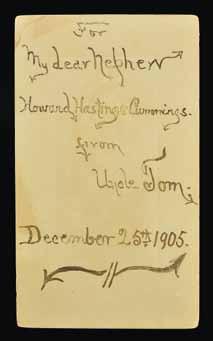 For
My dear Nephew
Howard Hastings Cummings.
from
Uncle Tom.
December 25th 1905.